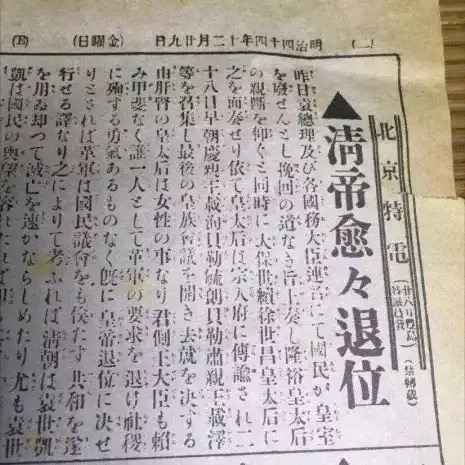 (一) 明治四十四年十二月廿九日 (金曜日)
北京特電 (廿八日曉着 特派員發) (禁轉載)
▲清帝愈々退位
昨日袁總理及び各國務大臣連名にて國民が皇室
を廢せんとし挽回の道なき旨上奏し隆裕皇太后
の親斷を仰ぐと同時に太保世續徐世昌皇太后に
之を面奏せり依て皇太后は宗人府に傳諭され二
十八日早朝慶親王載洵貝勒毓朗貝勒肅親王載澤
等を召集し最後の皇族會議を開き去就を決する
由肝腎の皇太后は女性の事なり君側王大臣も賴
み甲斐なく誰一人として革軍の要求を退け社稷
に殉する勇氣あるものなく既に皇帝退位に決せ
りとされば革軍は國民議會をも俟たず共和を遂
行せる譯なり之によりて考ふれば清朝は袁世凱
を用ゐ却つて滅亡を速かならしめたり尤も袁世
凱は國民の輿望を容れたれば